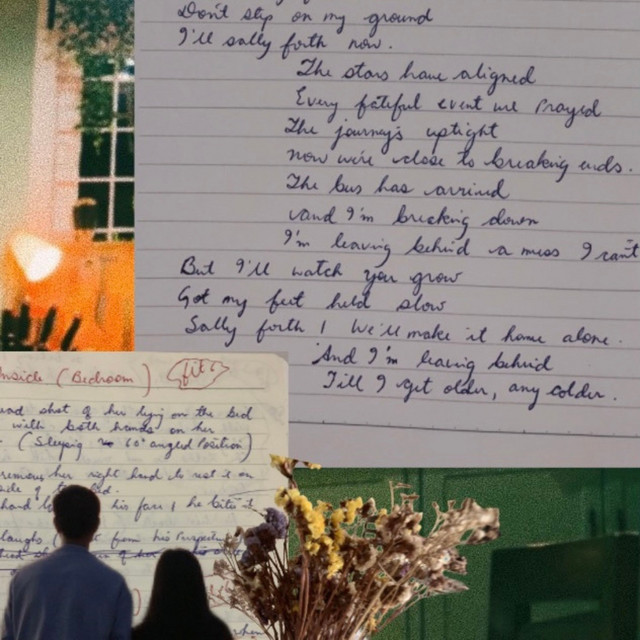 Don't step on my ground
I'll sally forth now.
The stars have aligned
Every fateful event we Prayed
The journey's uptight
now we're close to breaking ends.
The bus has arrived
and I'm breaking down
I'm leaving behind a mess I can't
But I'll watch you grow
Got my feet held slow
Sally forth! We'll make it home alone.
And I'm leaving behind
Till I get older, any colder.
Inside (Bedroom)
shot of her lying on the bed
with both hands on her
(Sleeping 60° angled Position)
her right hand to rest it on
hand his face, he bites it
laughs ( from his